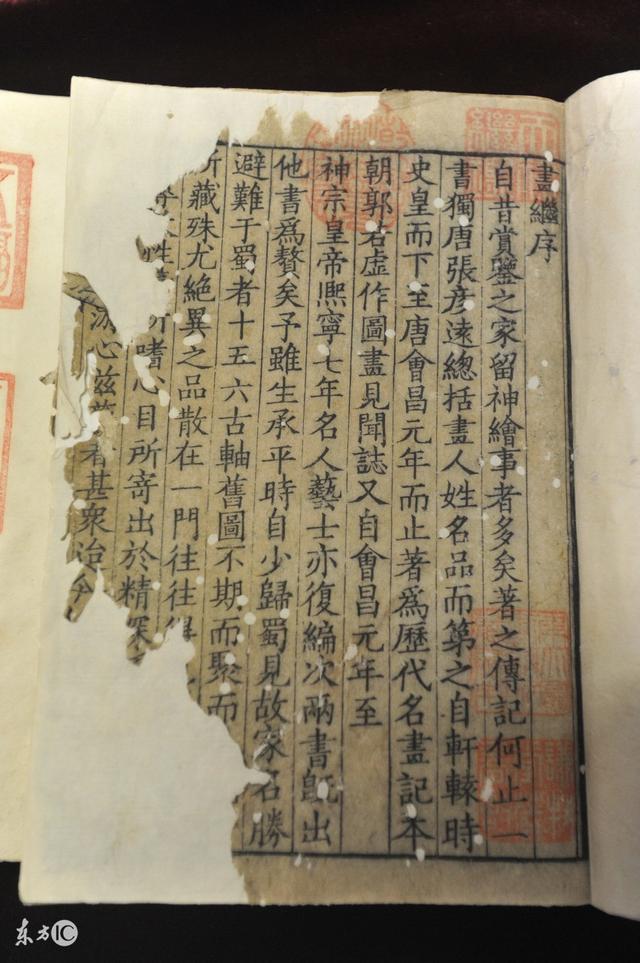 畫繼序
自昔賞鑒之家留神繪事者多矣著之傳記何止一
書獨唐張彥遠總括畫人姓名品而第之自軒轅時
史皇而下至唐會昌元年而止著爲歷代名畫記本
朝郭若虛作圖畫見聞誌又自會昌元年至
神宗皇帝熈寧七年名人藝士亦復編次兩書旣出
他書爲贅矣予雖生承平時自少歸蜀見故家名勝
避難于蜀者十五六古軸舊圖不期而聚而
所藏殊尤絶異之品散在一門往往得
性 所嗜心目所寄出於精深
游心茲藝者甚衆迨今
东方IC